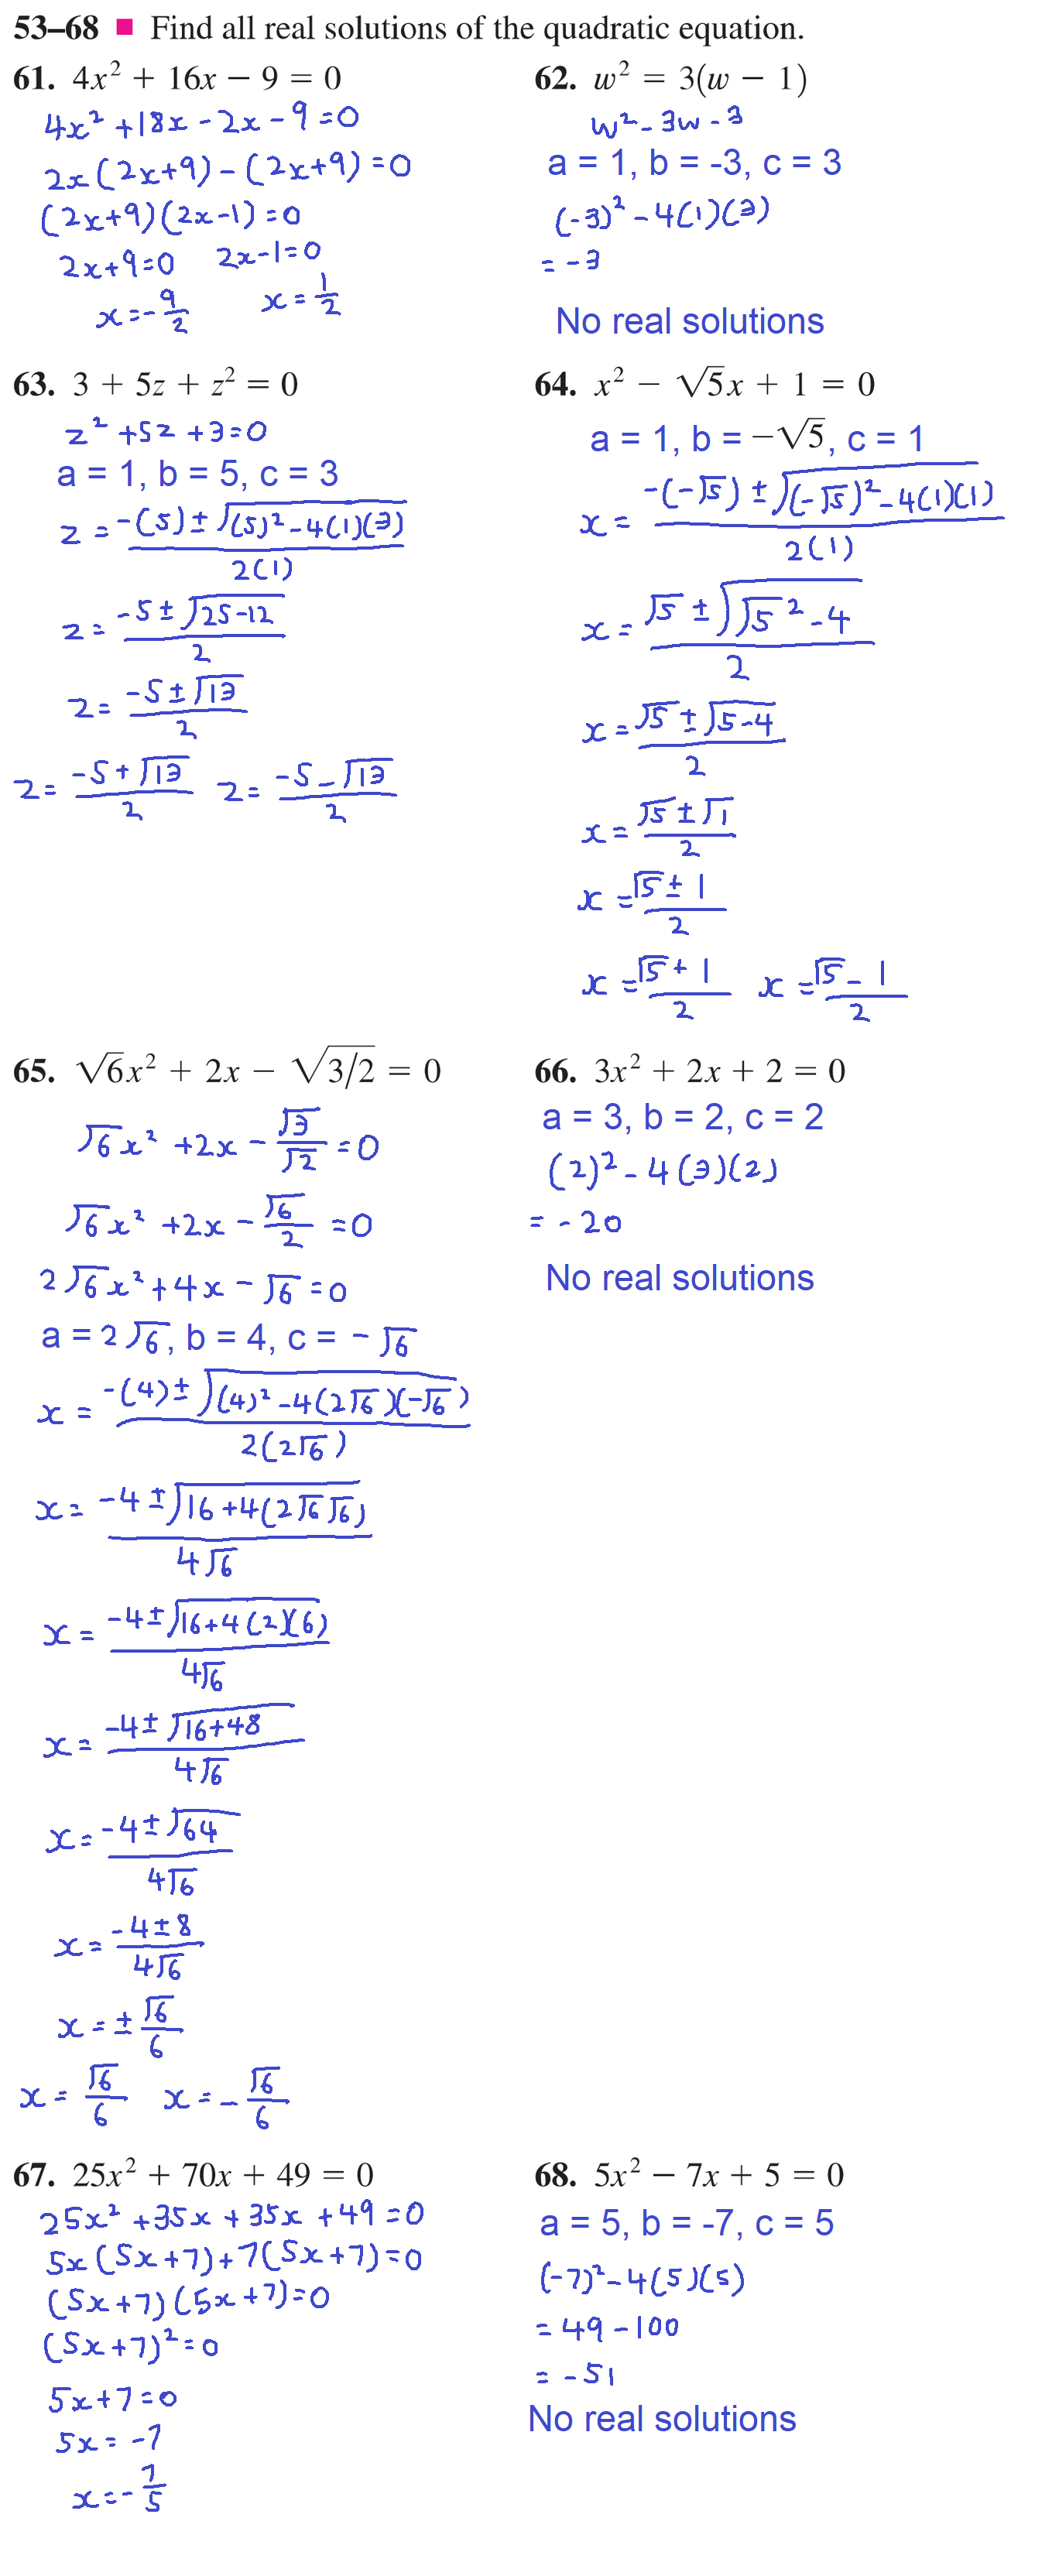 53–68 ■ Find all real solutions of the quadratic equation.
61. 4x² + 16x − 9 = 0
4x² + 18x - 2x - 9 = 0
2x(2x+9) - (2x+9) = 0
(2x+9)(2x-1) = 0
2x+9=0 2x-1=0
x = -9/2 x = 1/2
62. w² = 3(w − 1)
w² - 3w - 3
a = 1, b = -3, c = 3
(-3)² - 4(1)(3)
= -3
No real solutions
63. 3 + 5z + z² = 0
z² + 5z + 3 = 0
a = 1, b = 5, c = 3
z = (-(5) ± √((5)² - 4(1)(3))) / 2(1)
z = (-5 ± √(25-12)) / 2
z = (-5 ± √13) / 2
z = (-5 + √13) / 2 z = (-5 - √13) / 2
64. x² − √5x + 1 = 0
a = 1, b = −√5, c = 1
x = (-(-√5) ± √((-√5)² - 4(1)(1))) / 2(1)
x = (√5 ± √(√5² - 4)) / 2
x = (√5 ± √(5-4)) / 2
x = (√5 ± √1) / 2
x = (√5 ± 1) / 2
x = (√5 + 1) / 2 x = (√5 - 1) / 2
65. √6x² + 2x − √(3/2) = 0
√6x² + 2x - √3/√2 = 0
√6x² + 2x - √6/2 = 0
2√6x² + 4x - √6 = 0
a = 2√6, b = 4, c = -√6
x = (-(4) ± √((4)² - 4(2√6)(-√6))) / 2(2√6)
x = (-4 ± √(16 + 4(2√6√6))) / 4√6
x = (-4 ± √(16+4(2)(6))) / 4√6
x = (-4 ± √(16+48)) / 4√6
x = (-4 ± √64) / 4√6
x = (-4 ± 8) / 4√6
x = ± √6/6
x = √6/6 x = -√6/6
66. 3x² + 2x + 2 = 0
a = 3, b = 2, c = 2
(2)² - 4(3)(2)
= -20
No real solutions
67. 25x² + 70x + 49 = 0
25x² + 35x + 35x + 49 = 0
5x(5x+7) + 7(5x+7) = 0
(5x+7)(5x+7) = 0
(5x+7)² = 0
5x+7=0
5x = -7
x = -7/5
68. 5x² − 7x + 5 = 0
a = 5, b = -7, c = 5
(-7)² - 4(5)(5)
= 49 - 100
= -51
No real solutions